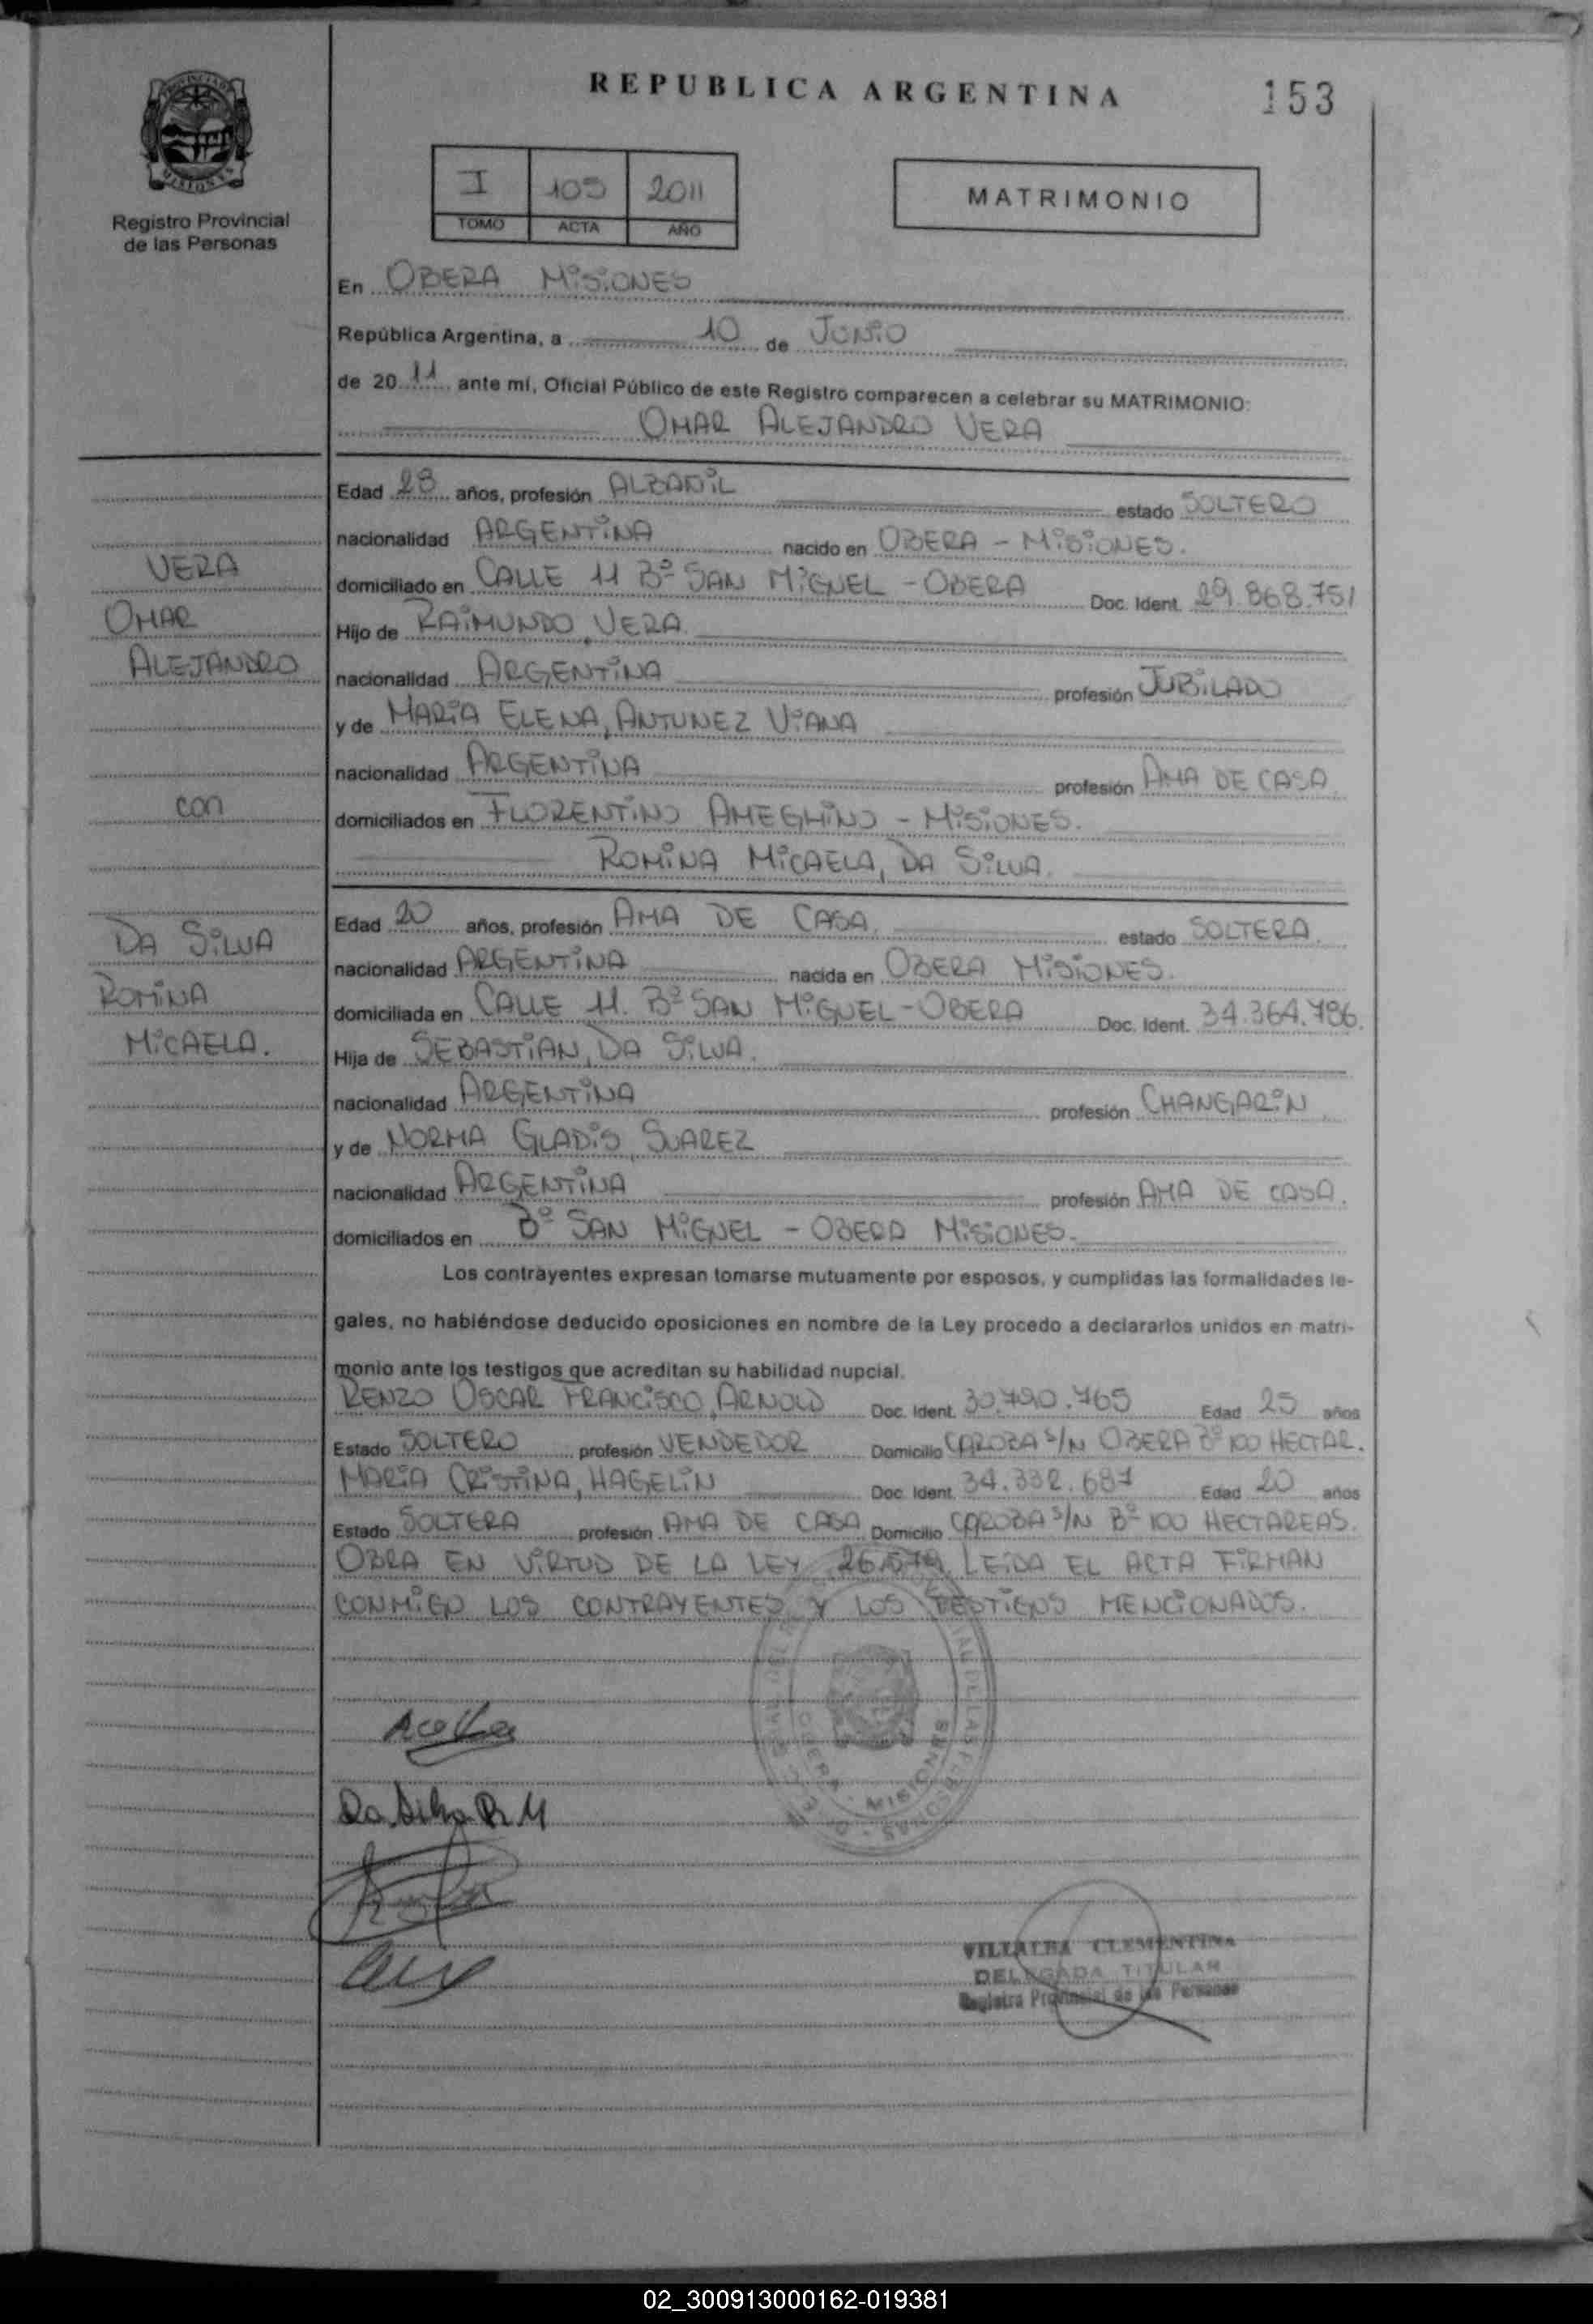 REPUBLICA ARGENTINA
153
Registro Provincial
de las Personas
I 105 2011
TOMO ACTA AÑO
MATRIMONIO
En OBERA MISIONES
República Argentina, a 10 de JUNIO
de 20 11 ante mí, Oficial Público de este Registro comparecen a celebrar su MATRIMONIO:
OMAR ALEJANDRO VERA
Edad 28 años, profesión ALBAÑIL estado SOLTERO
nacionalidad ARGENTINA nacido en OBERA - MISIONES.
VERA
domiciliado en CALLE 11 Bº SAN MIGUEL - OBERA Doc. Ident. 29.868.751
OMAR
Hijo de RAIMUNDO, VERA
ALEJANDRO
nacionalidad ARGENTINA profesión JUBILADO
y de MARIA ELENA, ANTUNEZ VIANA
nacionalidad ARGENTINA profesión AMA DE CASA
con
domiciliados en FLORENTINO AMEGHINO - MISIONES.
ROMINA MICAELA, DA SILVA.
Edad 20 años, profesión AMA DE CASA. estado SOLTERA.
DA SILVA
nacionalidad ARGENTINA nacida en OBERA MISIONES.
ROMINA
domiciliada en CALLE 11. Bº SAN MIGUEL - OBERA Doc. Ident. 34.364.786.
MICAELA.
Hija de SEBASTIAN, DA SILVA.
nacionalidad ARGENTINA profesión CHANGARIN
y de NORMA GLADIS, SUAREZ
nacionalidad ARGENTINA profesión AMA DE CASA.
domiciliados en Bº SAN MIGUEL - OBERA MISIONES.
Los contrayentes expresan tomarse mutuamente por esposos, y cumplidas las formalidades le-
gales, no habiéndose deducido oposiciones en nombre de la Ley procedo a declararlos unidos en matri-
monio ante los testigos que acreditan su habilidad nupcial.
RENZO OSCAR FRANCISCO, ARNOLD Doc. Ident. 30.790.765 Edad 25 años
Estado SOLTERO profesión VENDEDOR Domicilio CAROBA S/N OBERA Bº 100 HECTAR.
MARIA CRISTINA, HAGELIN Doc. Ident. 34.332.687 Edad 20 años
Estado SOLTERA profesión AMA DE CASA Domicilio CAROBA S/N Bº 100 HECTAREAS.
OBRA EN VIRTUD DE LA LEY 26.579 LEIDA EL ACTA FIRMAN
CONMIGO LOS CONTRAYENTES Y LOS TESTIGOS MENCIONADOS.
MISIONES
Da Silva R. M
VILLALBA CLEMENTINA
DELEGADA TITULAR
Registro Provincial de las Personas
02_300913000162-019381